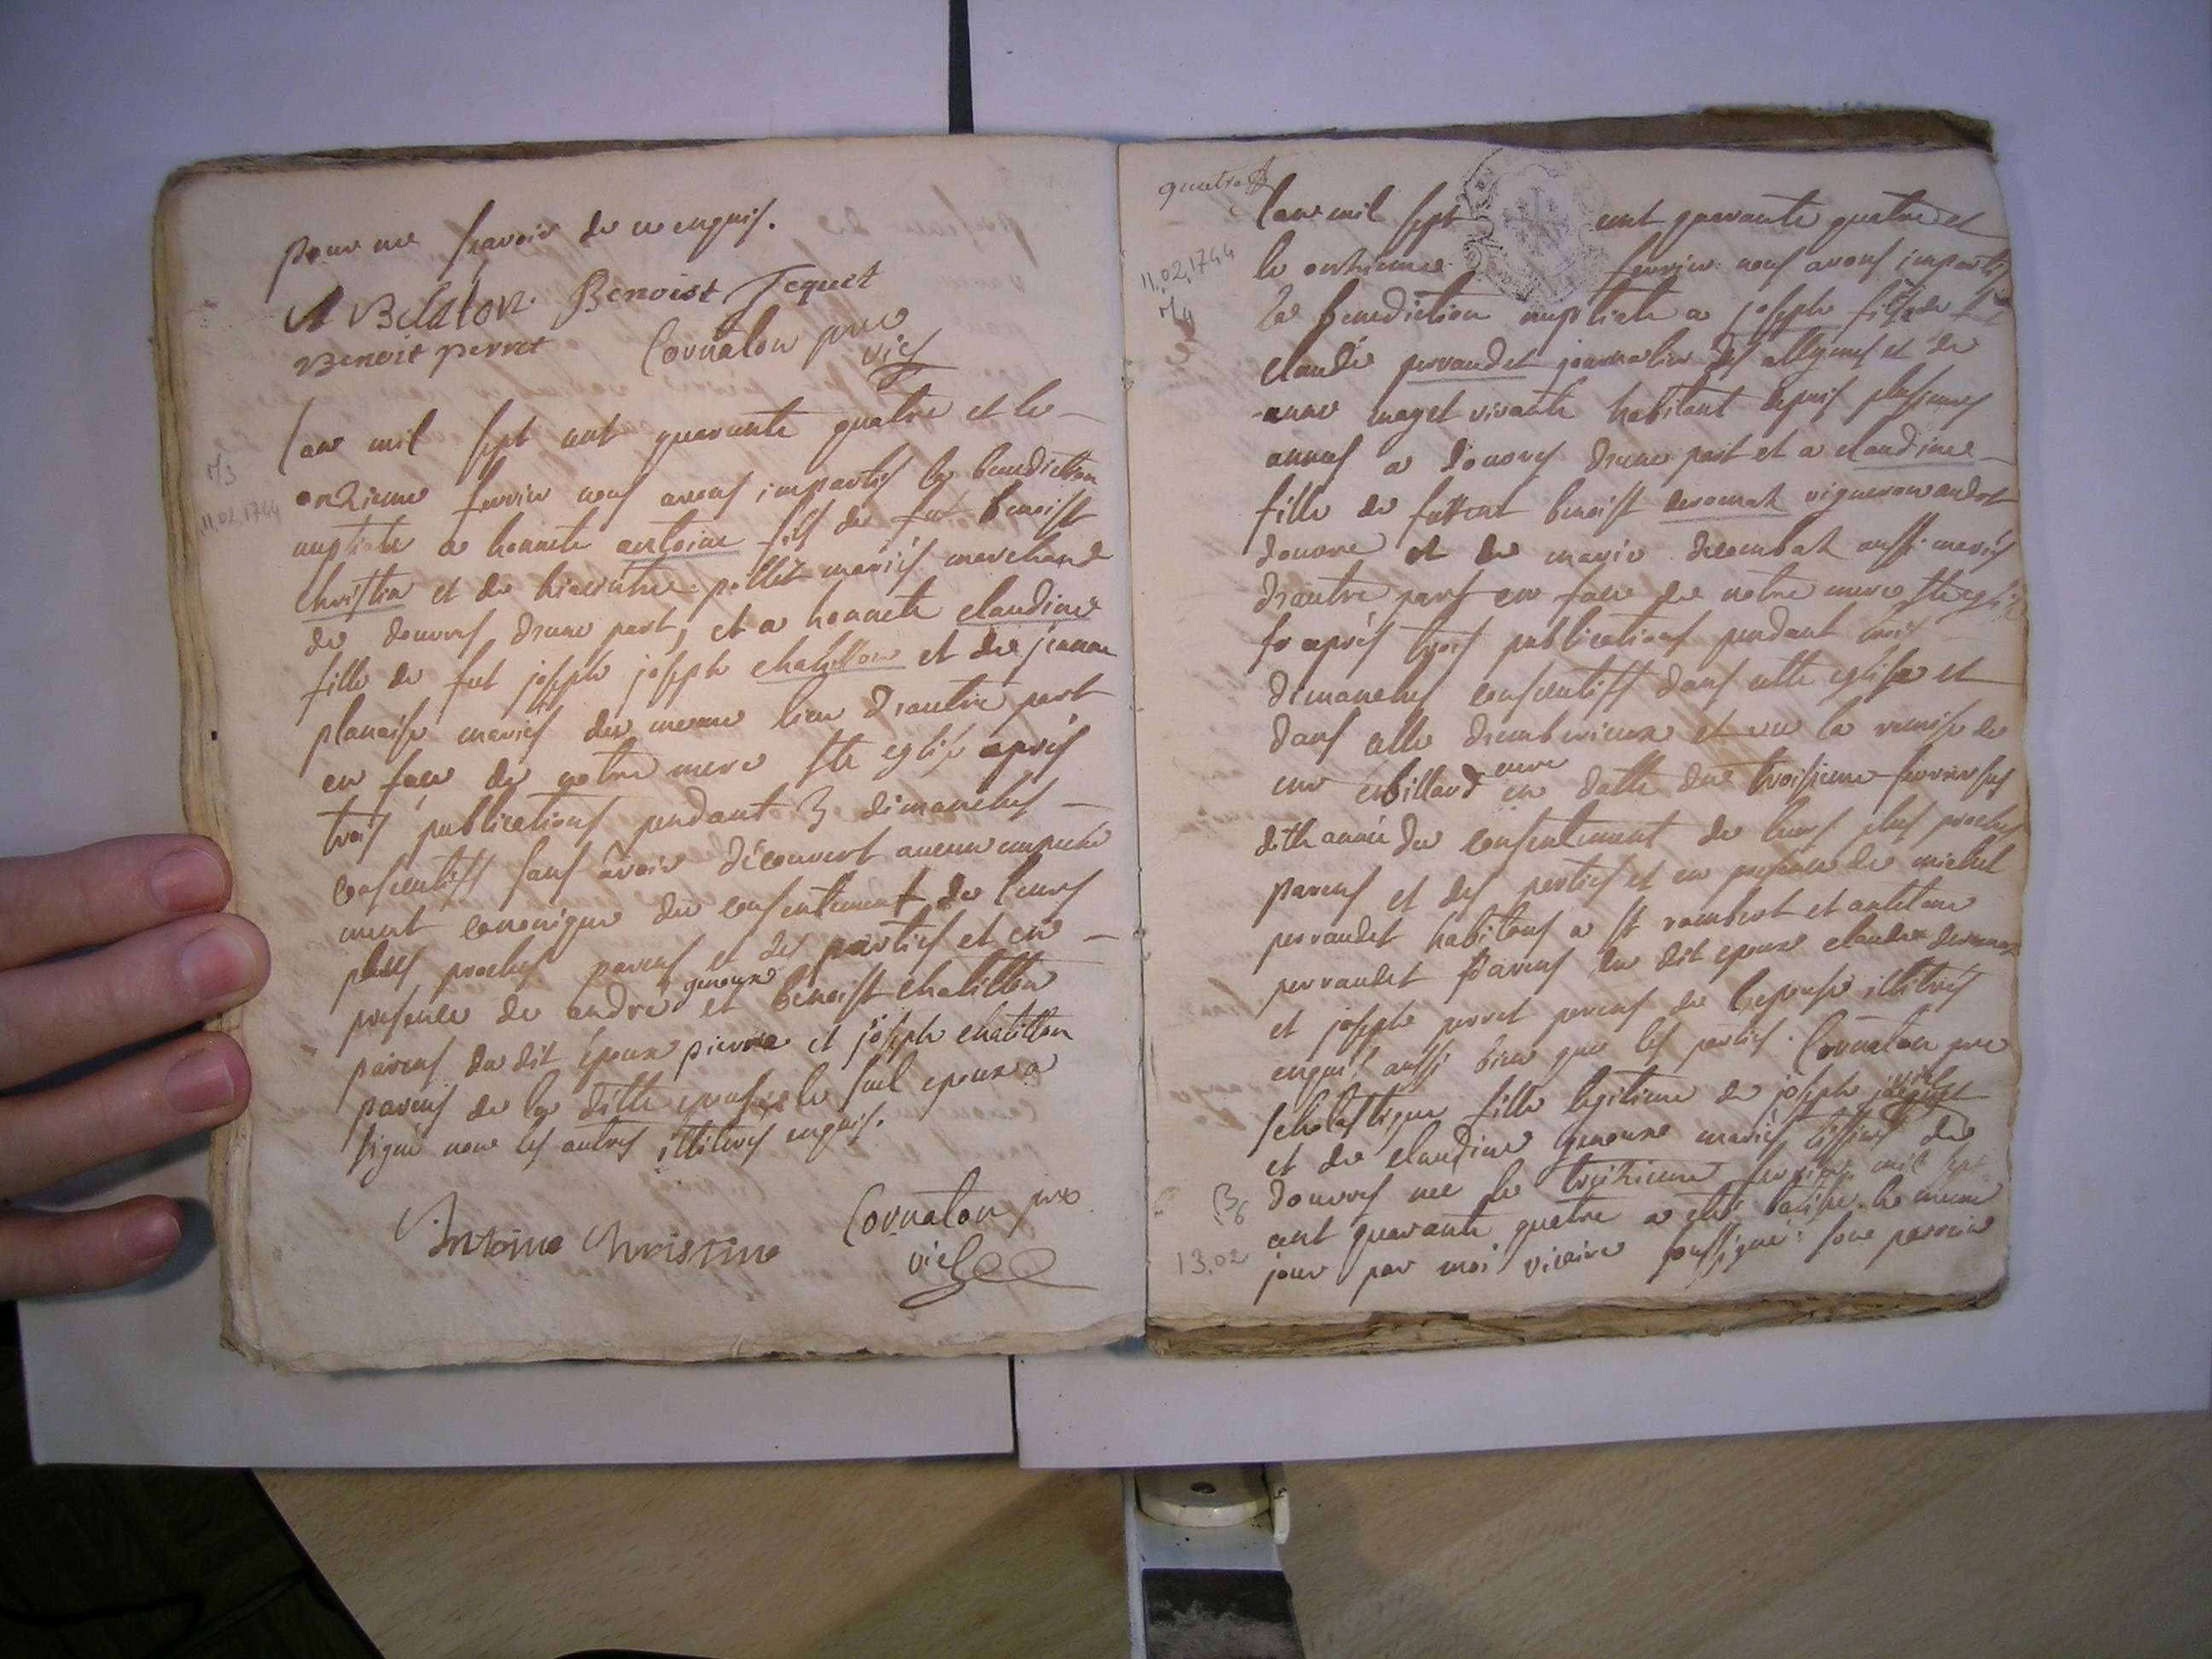 pour ne sçavoir de ce enquis.
A Belaton Benoist Jequet
Benoit perret Cornaton ptre
vic
Lan mil sept cent quarante quatre et le
M3
onzieme fevrier nous avons impartis la benediction
11.02.1744
nuptiale a honnete antoine fils de fut benoist
christin et de hiacinthe pillet mariés marchand
de douvres d'une part, et a honnete claudine
fille de fut joseph joseph chatillon et de jeanne
planaise mariés du meme lieu d'autre part
en face de notre mere ste eglise après
trois publications pendant 3 dimanches
consecutifs sans avoir découvert aucun empeche
ment canonique du consentement de leurs
plus proches parens et des parties et en
presence de andré genoux et benoist chatillon
parens du dit époux pierre et joseph chatillon
parens de la ditte epouse le seul epoux a
signé non les autres illitires enquis.
Antoine Christine Cornaton ptre
vic
quatre
Lan mil sept cent quarante quatre et
11.02.1744
M4
le onzieme fevrier nous avons impartis
la benediction nuptiale a joseph fils de
claude perraudet journalier des allymes et de
anne maget vivante habitant depuis plusieurs
annes a douvres d'une part et a claudine
fille de benoist deromat vigneron
douvre et de marie decombat aussi mariés
d'autre part en face de notre mere ste eglise
trois publications pendant trois
dimanches consecutifs dans cette eglise et
dans celle d'amberieux et vu la remise de
mr erbillard curé en datte du troisieme fevrier sus
ditte année du consentement de leurs plus proches
parens et des parties et en presence de michel
perraudet habitans a st rambert et antelme
perraudet parens du dit epoux claude
et joseph perret parens de l'epouse illitirés
enquis aussi bien que les parties. Cornaton ptre
vic
scholastique fille legitime de joseph jequet
et de claudine genoux mariés du
B6
douvres nee le treizieme fevrier mil sept
cent quarante quatre a été batisée le meme
13.02
jour par moi vicaire soussigné: son parrain